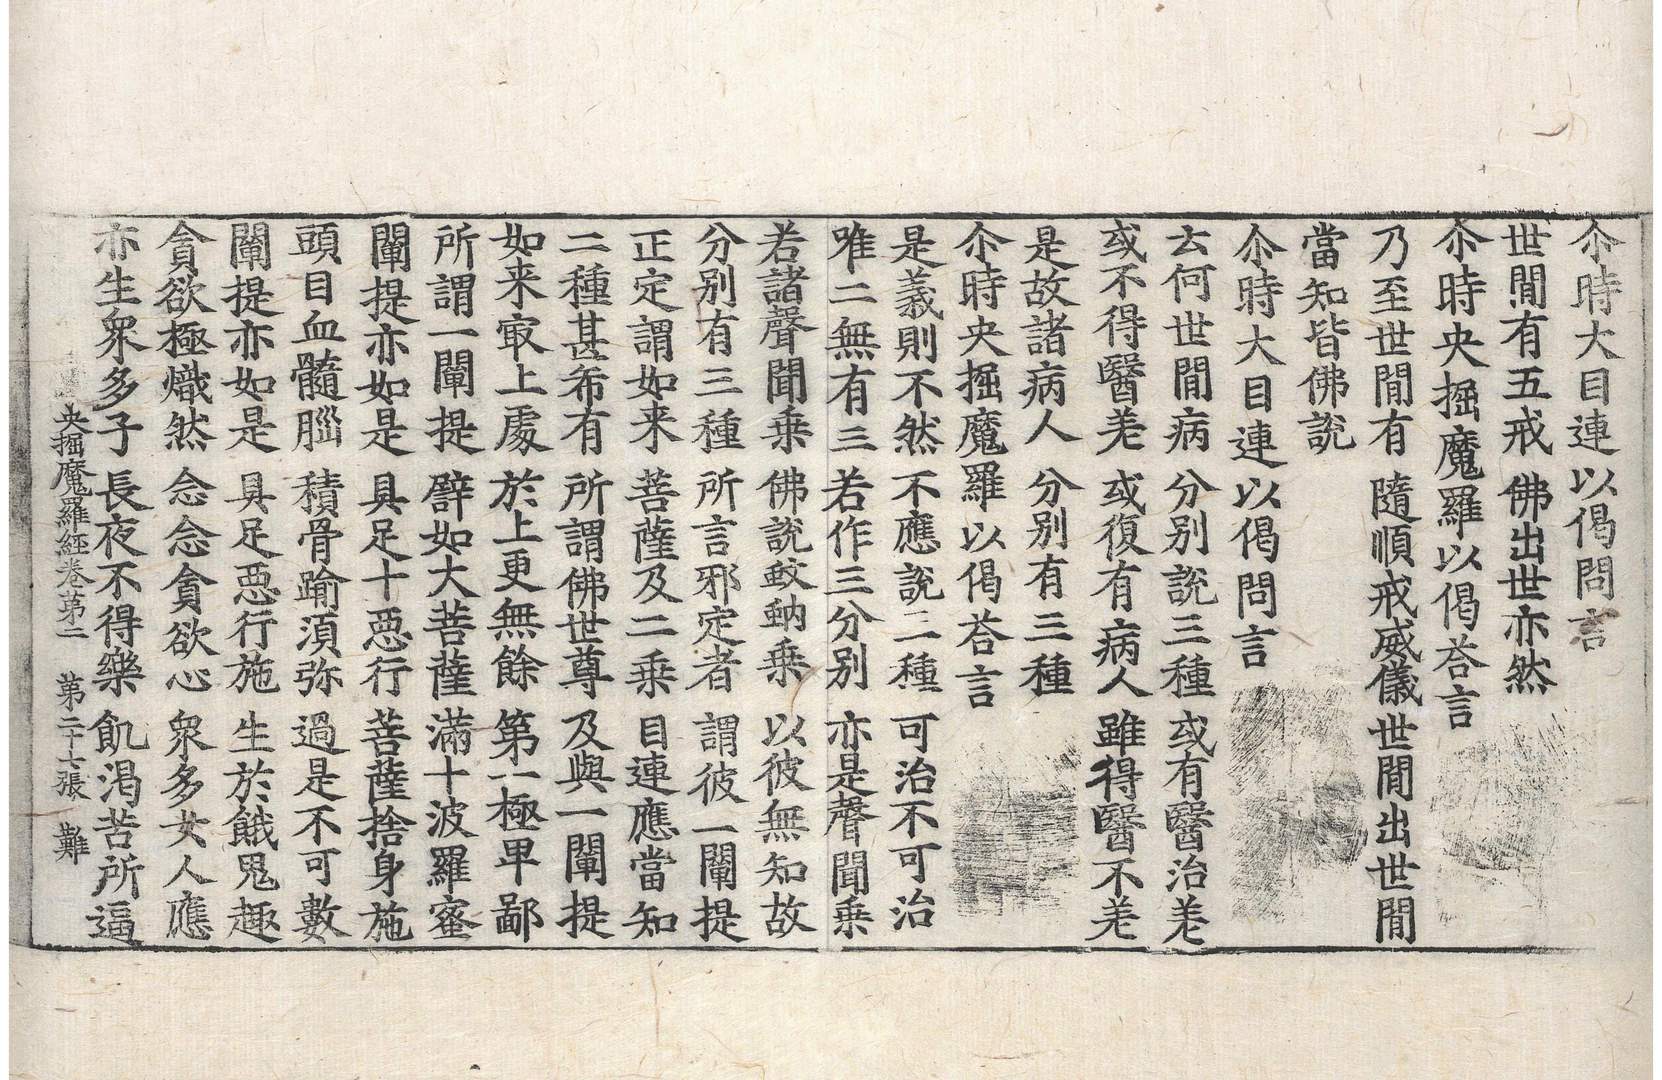 尒時大目連以偈問言
世閒有五戒 佛出世亦然
尒時央掘魔羅以偈荅言
乃至世閒有 隨順戒威儀 世閒出世閒
當知皆佛說
尒時大目連以偈問言
云何世閒病 分別說三種 或有醫治差
或不得醫差 或復有病人 雖得醫不差
是故諸病人 分別有三種
尒時央掘魔羅以偈荅言
是義則不然 不應說二種 可治不可治
唯二無有三 若作三分別 亦是聲聞乗
若諸聲聞乗 佛說蚊蚋乗 以彼無知故
分別有三種 所言邪定者 謂彼一闡提
正定謂如来 菩薩及二乗 目連應當知
二種甚希有 所謂佛世尊 及與一闡提
如来㝡上處 於上更無餘 第一極卑鄙
所謂一闡提 譬如大菩薩 滿十波羅蜜
闡提亦如是 具足十惡行 菩薩捨身施
頭目血髓腦 積骨踰湏弥 過是不可數
闡提亦如是 具足惡行施 生於餓鬼趣
貪欲極熾然 念念貪欲心 衆多女人應
亦生衆多子 長夜不得樂 飢渇苦所逼
央掘魔羅経卷第二 第二十七張 難